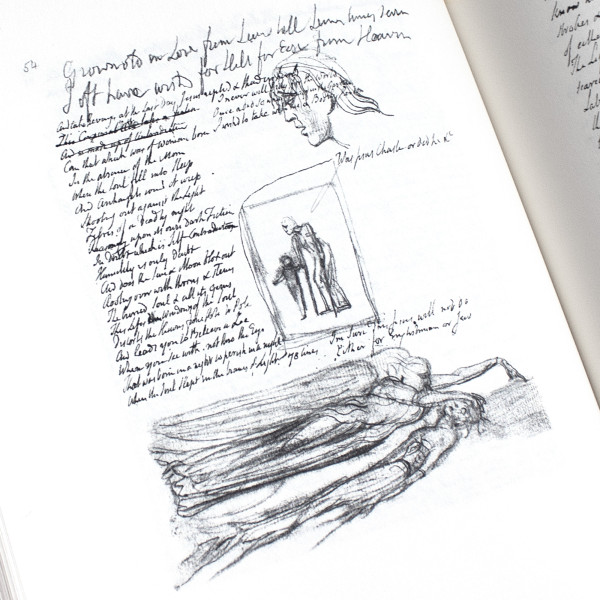 54
Grown old in Love from Seven till Seven times Seven
I oft have wishd for Hell for Ease from Heaven
And take revenge at the last Day Jesus replied & thunders
I never will Pray for the World
Once I did so
I wishd to take with me a Bodily
Can that which was of woman born
In the absence of the Morn
When the Soul fell into Sleep
And Archangels round it weep
Shooting out against the Light
Fibres of a deadly night
Reasoning upon its own Dark Fiction
In Doubt which is Self Contradiction
Humility is only Doubt
And does the Sun & Moon blot out
Rooting over with thorns & stems
The buried Soul & all its Gems
This Lifes dim Windows of the Soul
Distorts the Heavens from Pole to Pole
And leads you to Believe a Lie
When you see with not thro the Eye
That was born in a night to perish in a night
When the Soul slept in the beams of Light 78 lines
Was Jesus Chaste or did he &c
Im sure This Jesus will not do
Either for Englishman or Jew